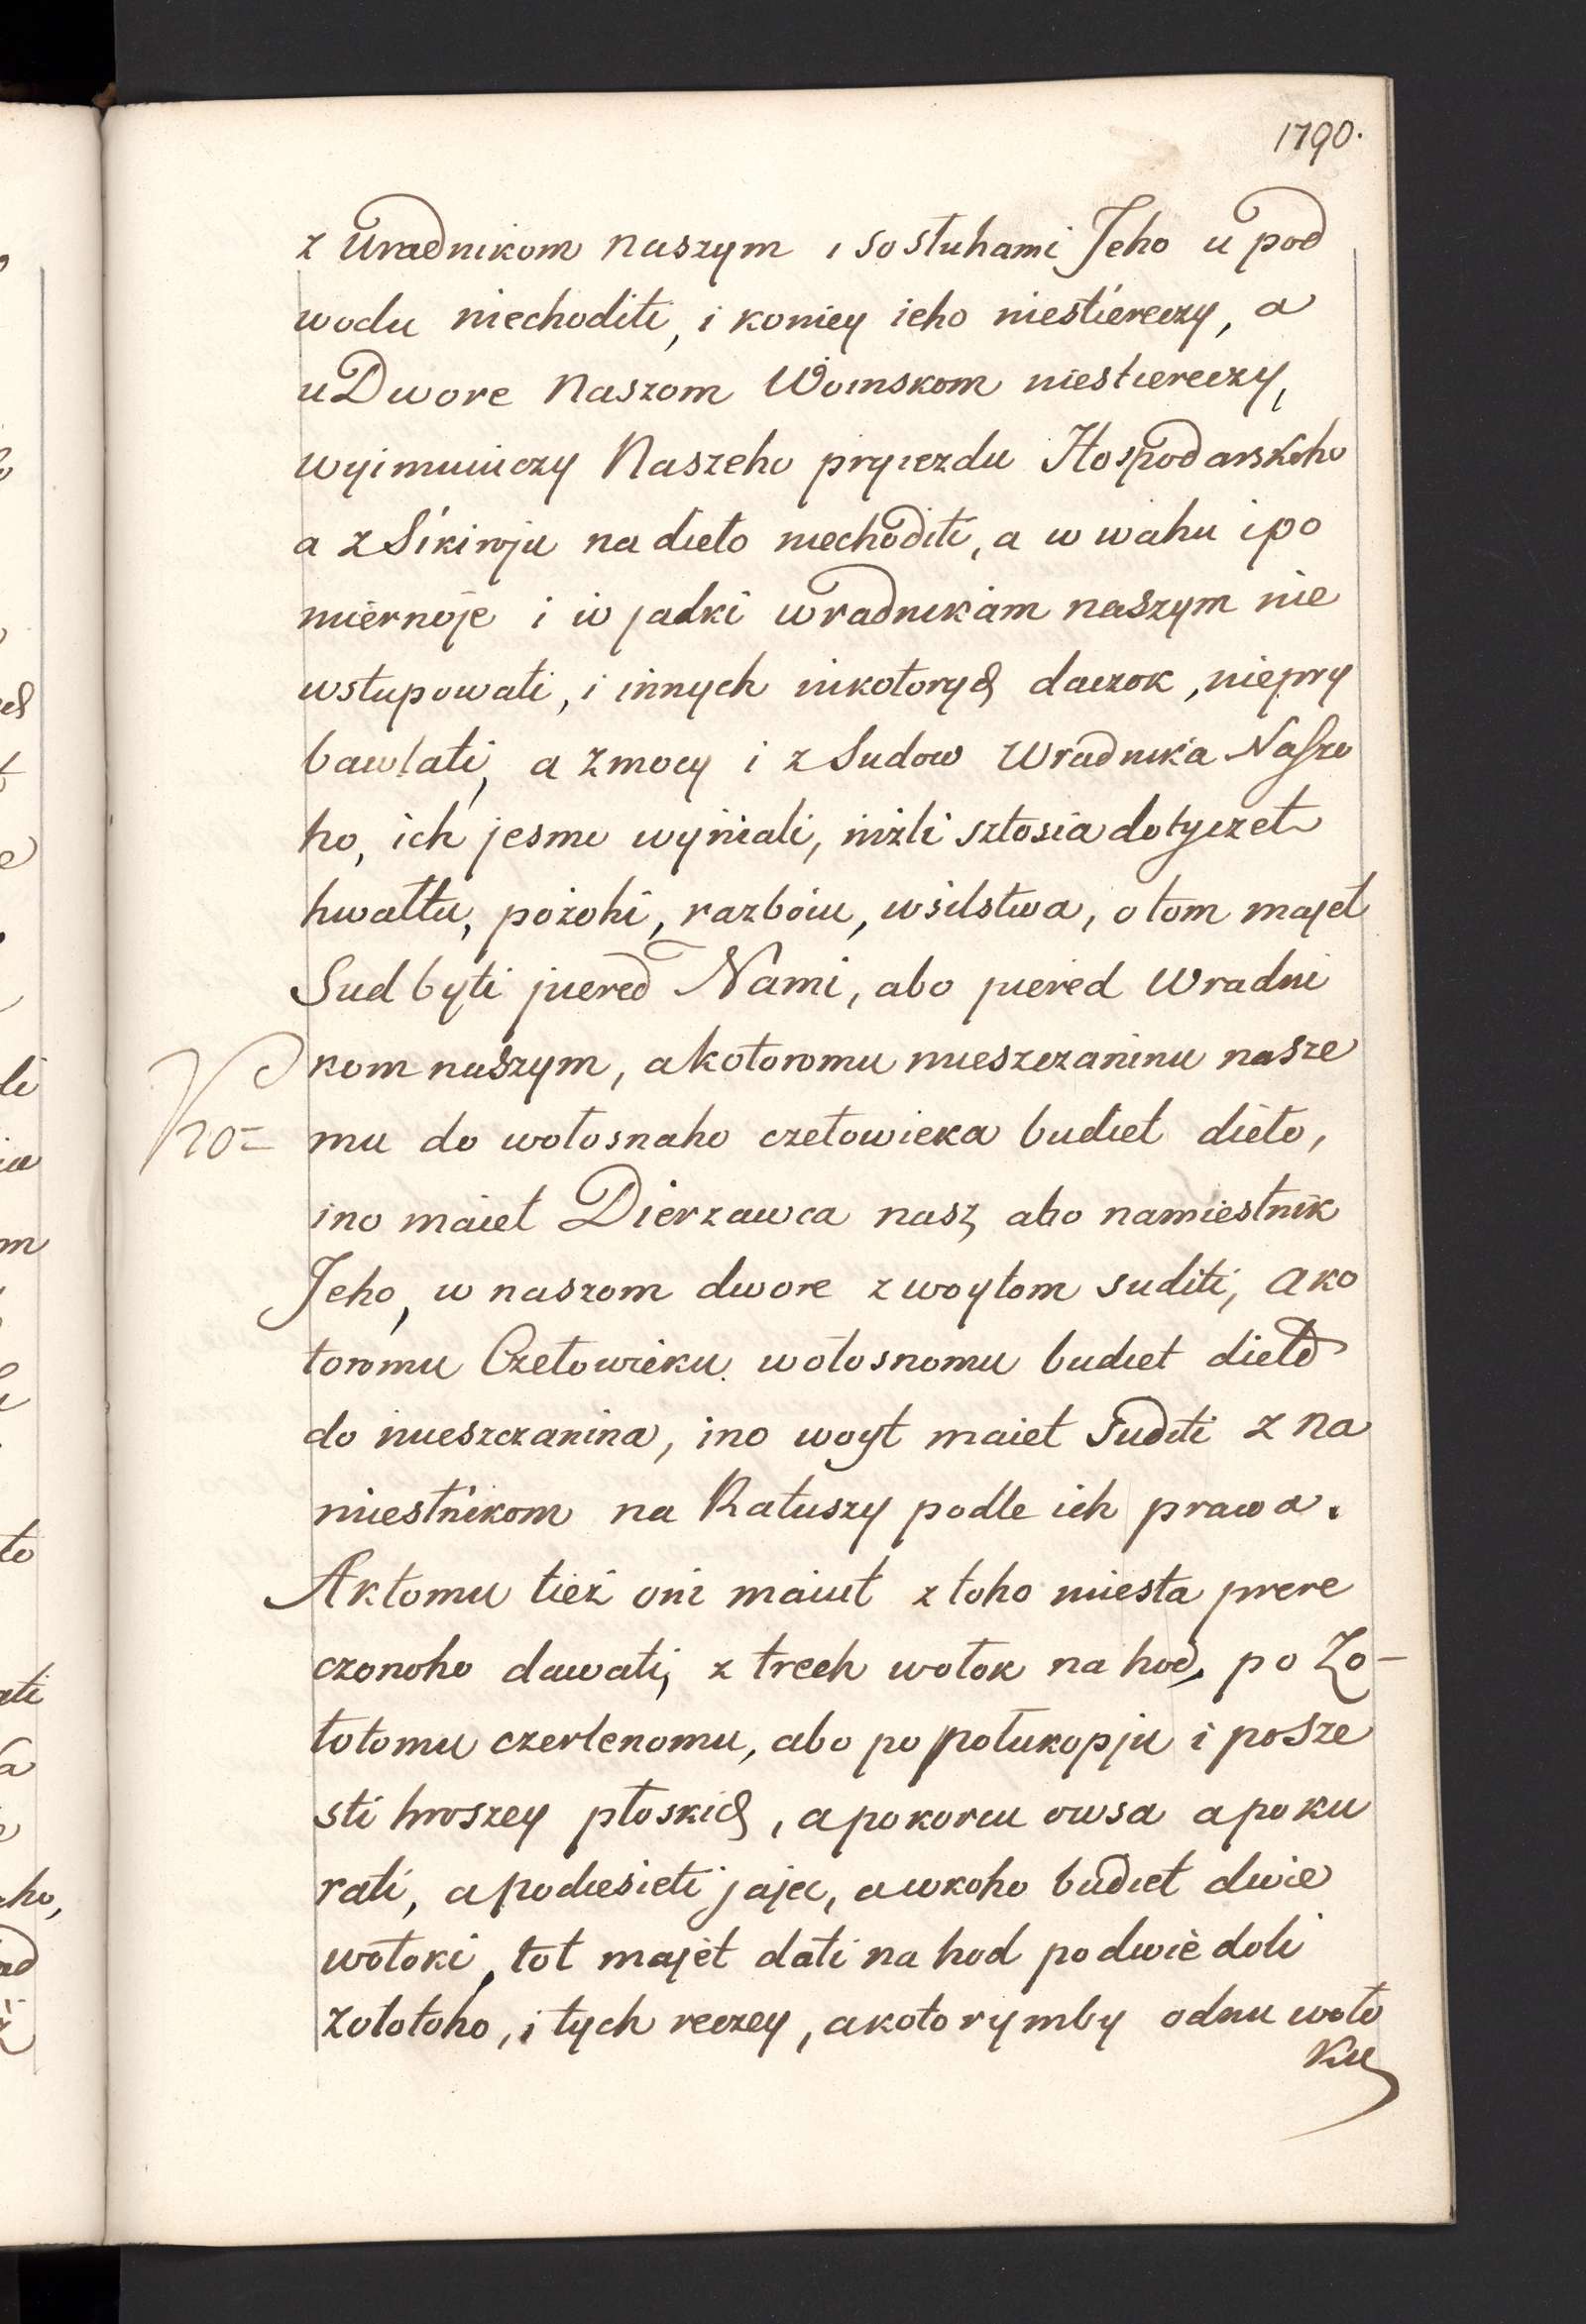 1790.
z Uradnikom naszym i so słuhami Jeho u pod
wodu niechoditi, i koniey ieho niestiereczy, a
u Dwore Naszom Woinskom niestiereczy,
wyimuiuczy Naszeho pryiezdu Hospodarskoho
a z Sikiroju na dieło niechoditi, a w wahu i po
miernoje i w jadki wradnikam naszym nie
wstupowati, i innych nikotorych daczok, niepry
bawlati, a z mocy i z Sudow Wradnika Nasze
ho, ich jesmo wyniali, niżli sztosia dotyczet
hwałtu, pożohi, razboiu, wsilstwa, o tom majet
Sud byti pered Nami, abo pered Wradni
kom naszym, a kotoromu mieszczaninu nasze
mu do wołosnaho czełowieka budiet dieło,
ino maiet Dierzawca nasz abo namiestnik
Jeho, w naszom dwore z woytom suditi, a ko
toromu Czełowieku wołosnomu budiet dieło
do mieszczanina, ino woyt maiet Suditi z na
miestnikom na Ratuszy podle ich prawa.
A ktomu tież oni maiut z toho miesta prere
czonoho dawati, z trech wołok na hod, po Zo-
łotomu czerlenomu, abo po połukopju i po sze
sti hroszey płoskich, a po korcu owsa a po ku
rati, a po diesieti jajec, a w koho budiet dwie
wołoki, tot majet dati na hod po dwie doli
zołotoho, i tych reczey, a kotorymby odnu woło
ku